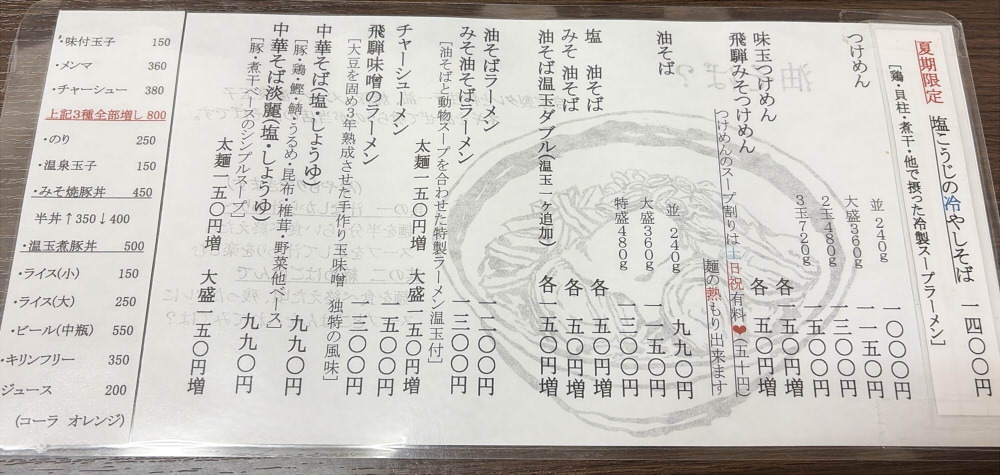 夏期限定 塩こうじの冷やしそば 一四〇〇円
[鶏・貝柱・煮干・他で摂った冷製スープラーメン]
つけめん 並 240g 一〇〇〇円
大盛360g 一一五〇円
2玉480g 一三〇〇円
3玉720g 一五〇〇円
味玉つけめん 各一五〇円増
飛騨みそつけめん 各一五〇円増
つけめんのスープ割りは土日祝有料❤(五十円)
麺の熱もり出来ます
油そば 並 240g 九九〇円
大盛360g 一一五〇円
特盛480g 一三〇〇円
塩 油そば 各一五〇円増
みそ 油そば 各一五〇円増
油そば温玉ダブル(温玉一ヶ追加) 各一五〇円増
油そばラーメン 一二〇〇円
みそ油そばラーメン 一三〇〇円
[油そばと動物スープを合わせた特製ラーメン温玉付]
チャーシューメン 太麺一五〇円増 大盛一五〇円増
飛騨味噌のラーメン 一三〇〇円
[大豆を固め3年熟成させた手作り玉味噌 独特の風味]
中華そば(塩・しょうゆ) 九九〇円
[豚・鶏・鰹・鯖・うるめ・昆布・椎茸・野菜他ベース]
中華そば淡麗(塩・しょうゆ) 九九〇円
[豚・煮干ベースのシンプルスープ]
太麺一五〇円増 大盛一五〇円増
・味付玉子 150
・メンマ 360
・チャーシュー 380
上記3種全部増し 800
・のり 250
・温泉玉子 150
・みそ焼豚丼 450
半丼↑350↓400
・温玉煮豚丼 500
・ライス(小) 150
・ライス(大) 250
・ビール(中瓶) 550
・キリンフリー 350
ジュース 200
(コーラ オレンジ)